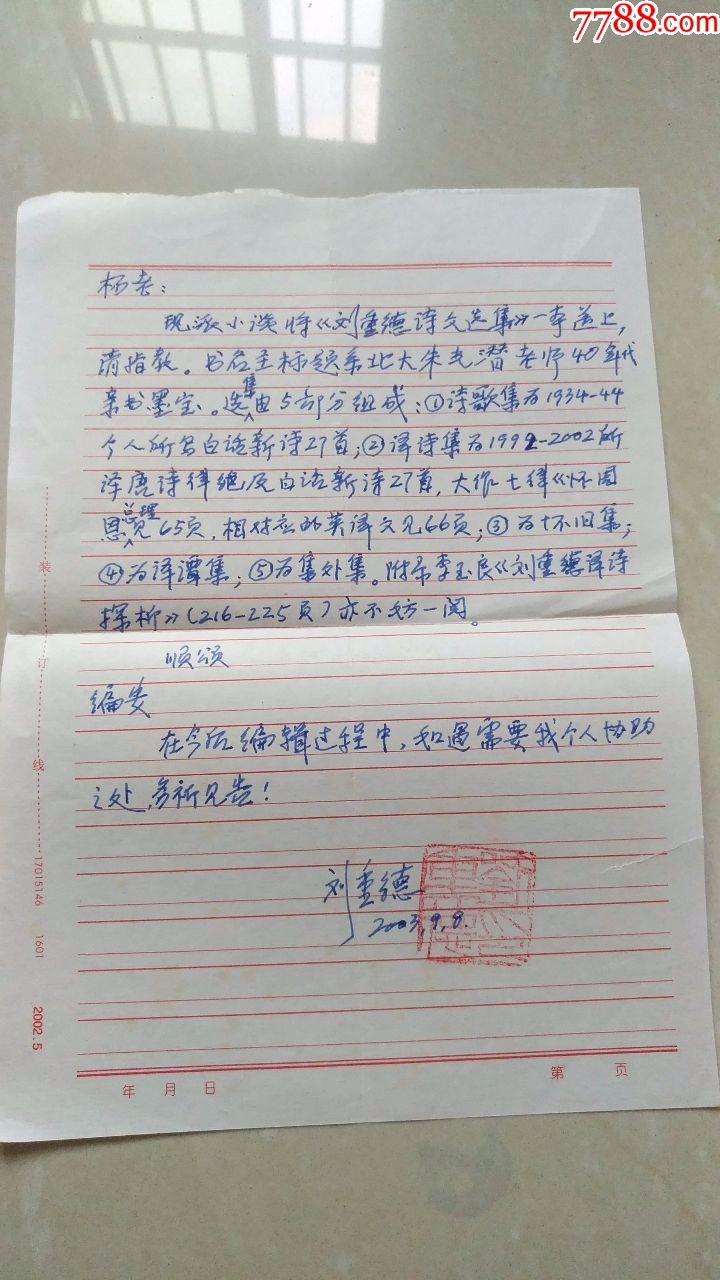 7788.com
杨老：
现派小谈将《刘重德诗文选集》一本送上，
请指教。书名至标题系北大朱光潜老师40年代
亲书墨宝。选集由5部分组成：①诗歌集为1934-44
个人所写白话新诗27首；②译诗集为1992-2002所
译唐诗律绝及白话新诗27首，大作七律《怀周
总理》见65页，相对应的英译文见66页；③为怀旧集；
④为译谭集；⑤为集外集。附录李玉良《刘重德译诗
探析》（216-225页）亦不妨一阅。
顺颂
编安
在今后编辑过程中，如遇需要我个人协助
之处，务祈见告！
刘重德
2003.9.8.
装订线
17015146 1601 2002.5
年 月 日
第 页